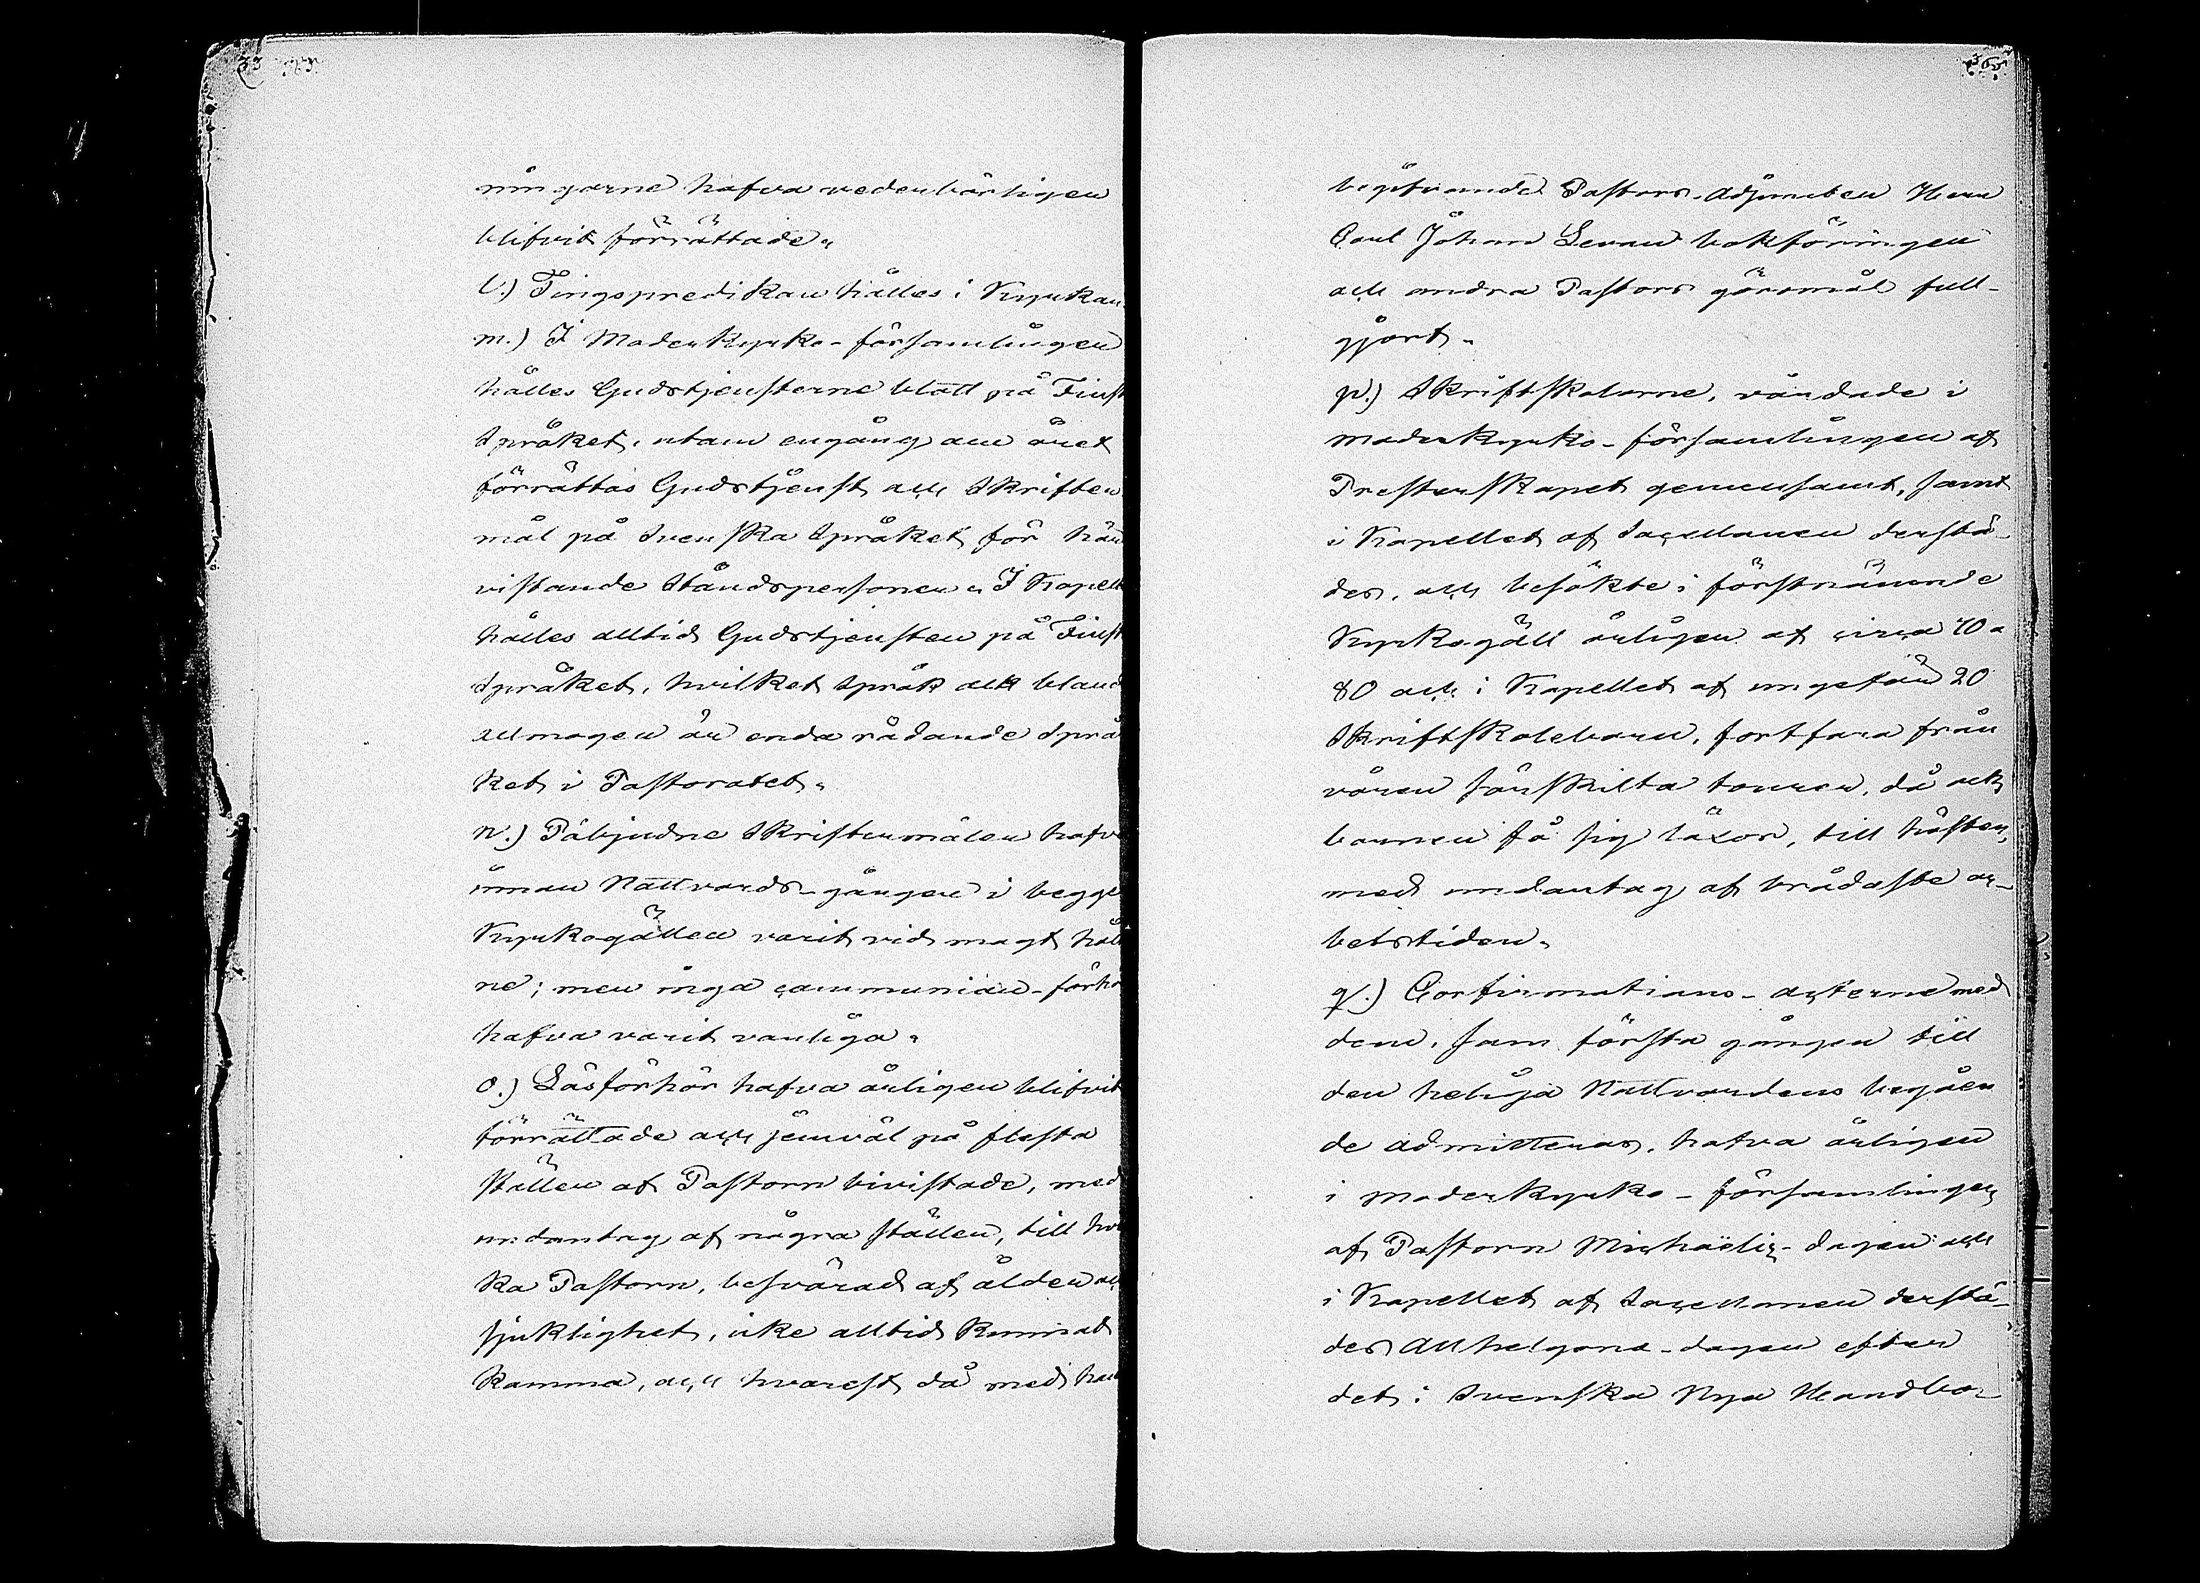 ningarne hafva vederbörligen
blifvit förrättade.
l.) Tingspredikan hålles i Kyrkan.
m.) I Moderkyrko-församlingen
hålles Gudstjensterne blott på Finsk
Språket, utom engång om året
förrättas Gudstjenst och Skriften
mål på Svenska Språket för här
vistande Ståndspersoner. I Kapell
hålles alltid Gudstjensten på Finsk
Språket, hvilket språk ock bland
allmogen är enda rådande Språ
ket i Pastoratet.
n.) Påbjudne Skriftermålen hafv
innan Nattvards-gången i begge
Kyrkogällen varit vid magt håll
ne; men inga communion-förhö
hafva varit vanliga.
o.) Läsförhör hafva årligen blifvit
förrättade och jemväl på flesta
ställen af Pastorn bivistade, med
undantag af några ställen, till hvi
ka Pastorn, besvärad af ålder och
sjuklighet, icke alltid kunnat
komma, och hvarest då med ha
365
biträdande Pastors-Adjuncten Herr
Carl Johan bokföringen
och andra Pastors göromål full-
gjort.
p.) Skriftskolorne, vårdade i
moderkyrko-församlingen af
Presterskapet gemensamt, samt
i Kapellet af Sacellanen derstä-
des, och besökte i förstnämnde
Kyrkogäll årligen af circa 70 a
80 och i Kapellet af ungefär 20
Skriftskolebarn, fortfara från
våren särskilta tourer, då ock
barnen få sig läxor, till hösten,
med undantag af brådaste ar-
betstiden.
q.) Confirmations-acterne med
dem, som första gången till
den heliga Nattvardens begåen
de admitteras, hafva årligen
i moderkyrko-församlingen
af Pastorn Michaëlis-dagen och
i Kapellet af Sacellanen derstä-
des Allhelgona-dagen efter
det i Svenska Nya Handbo-